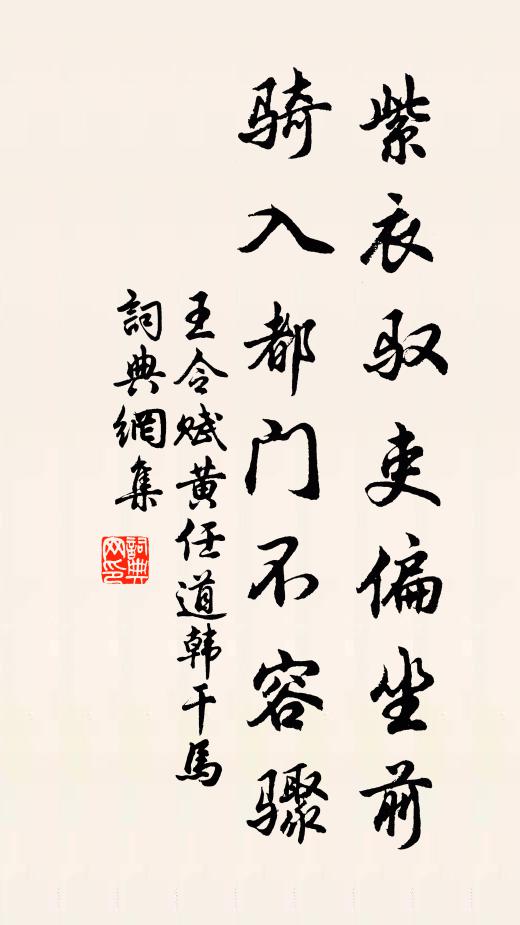 紫衣驭吏偏坐前
骑入都门不容骤
王令赋黄任道韩干馬
詞典網集
詞典网印